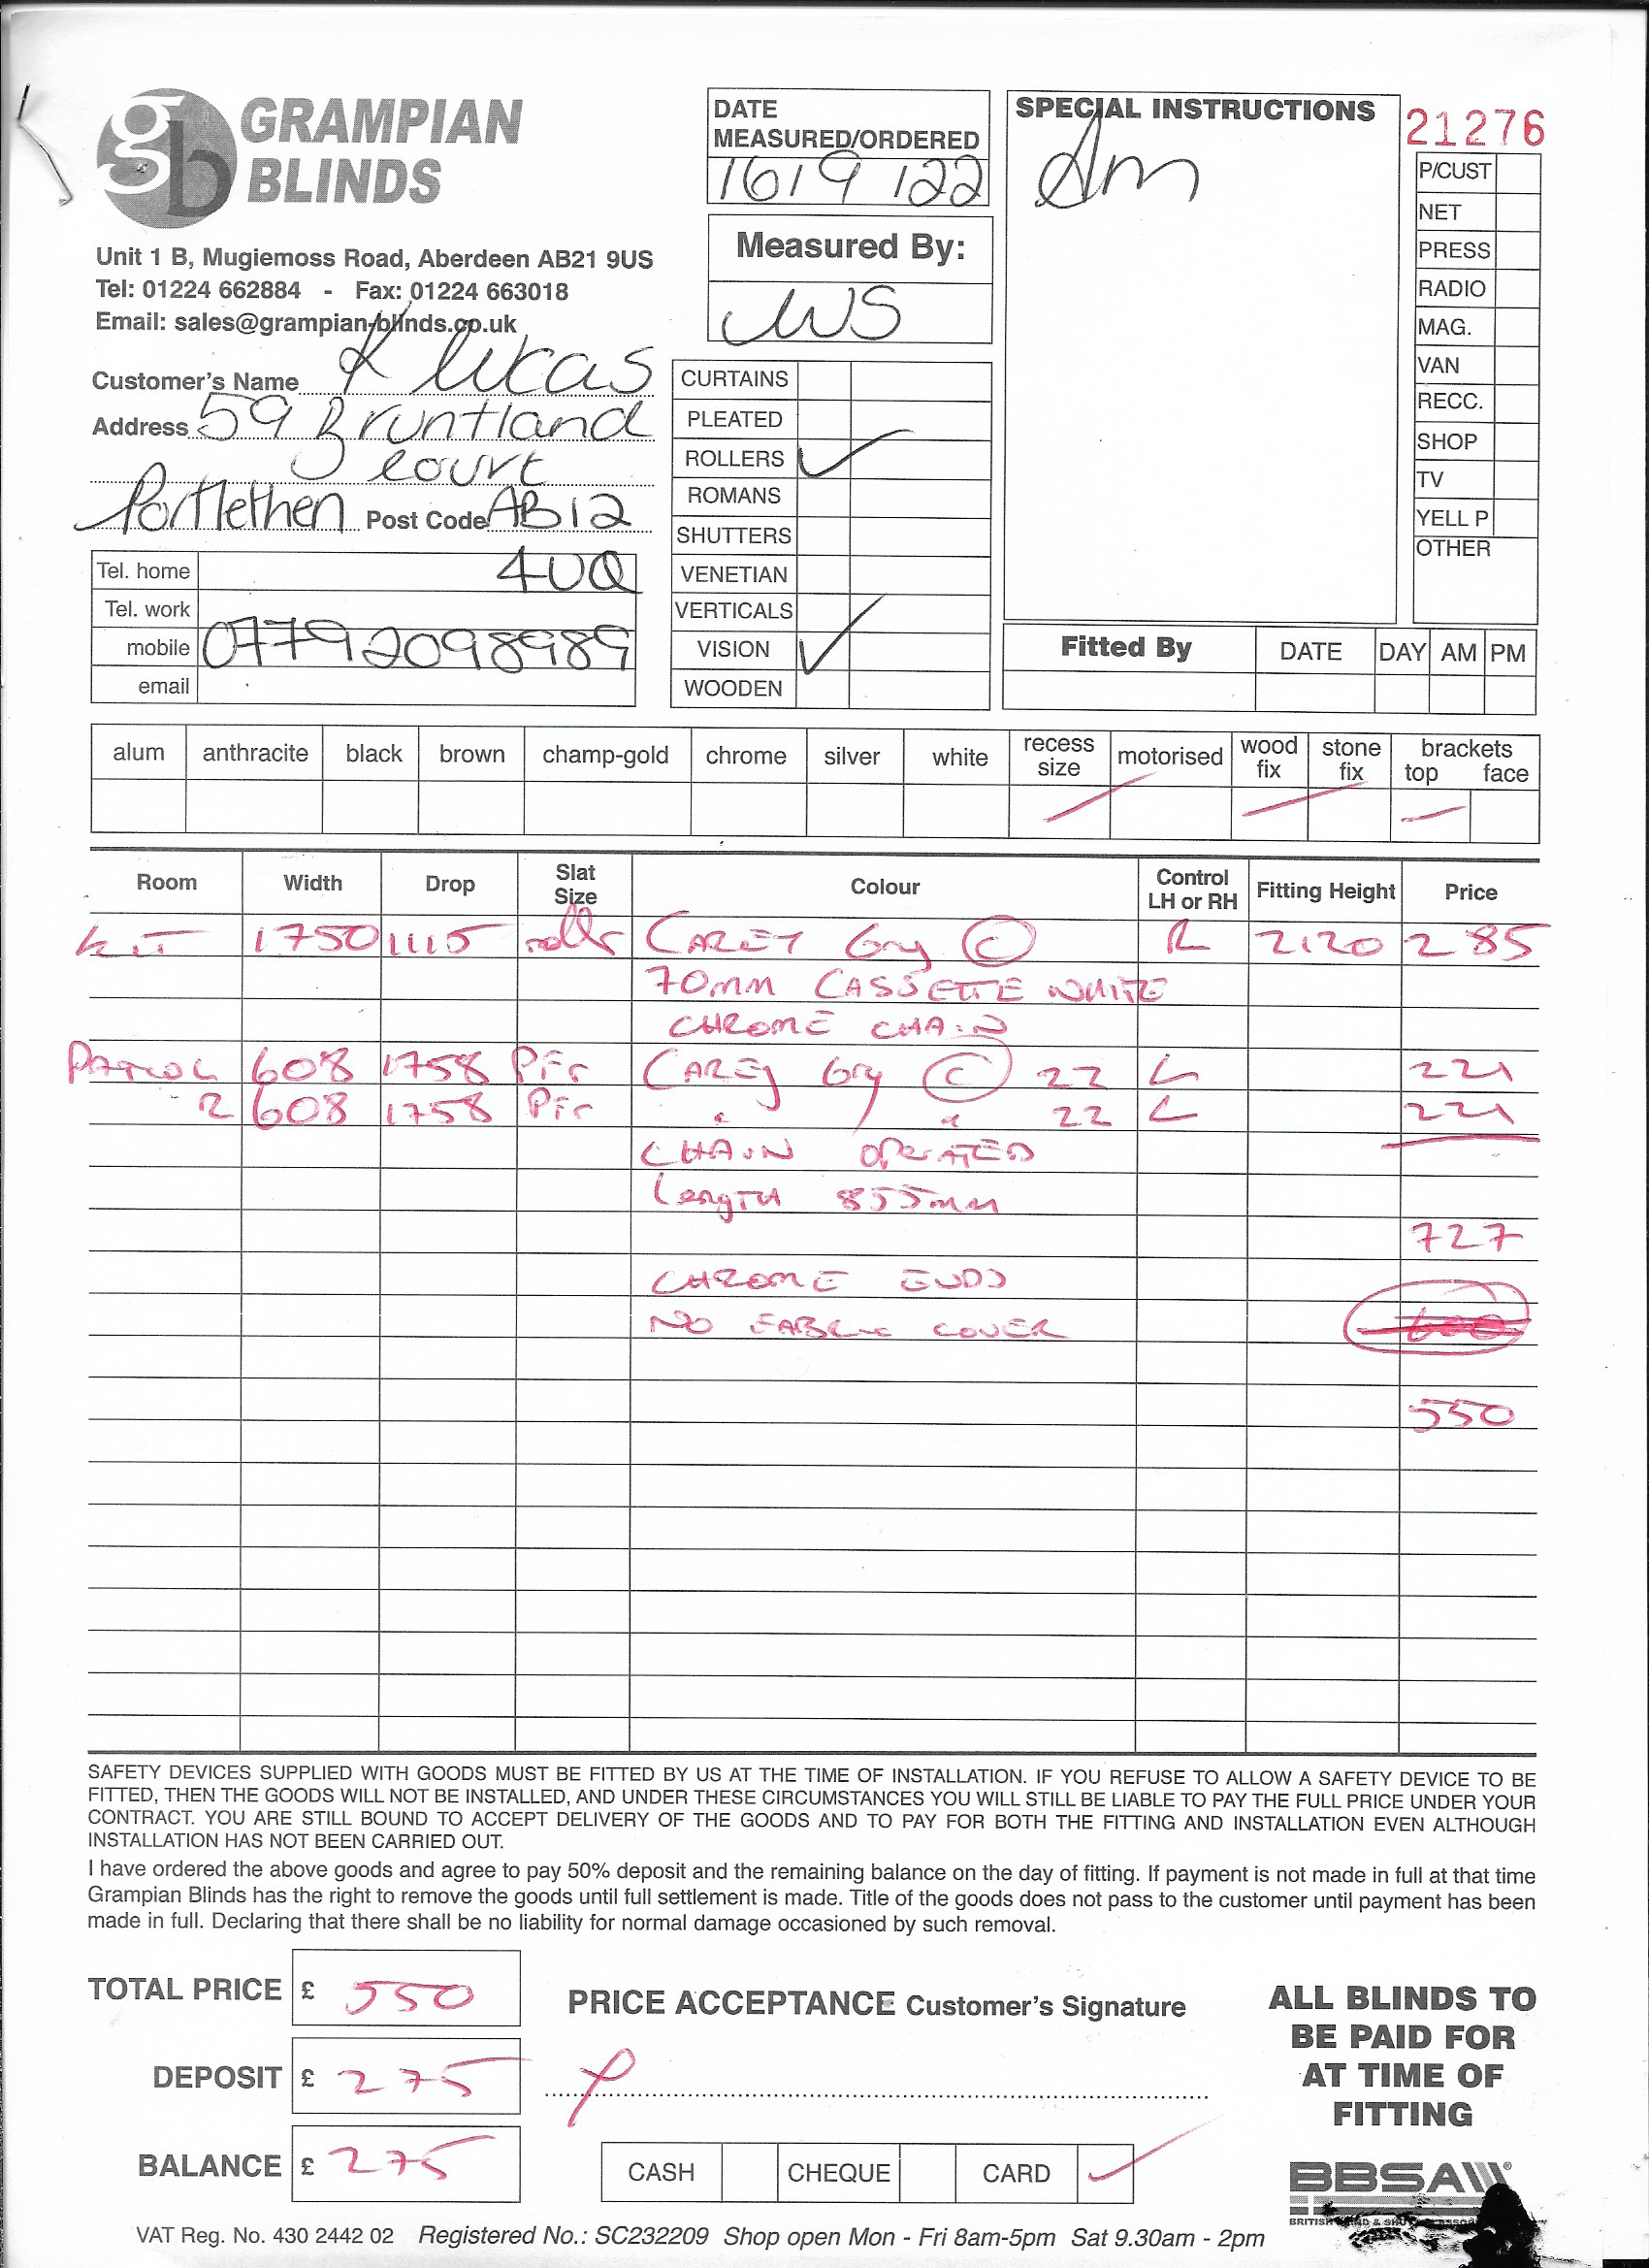 gb GRAMPIAN BLINDS
Unit 1 B, Mugiemoss Road, Aberdeen AB21 9US
Tel: 01224 662884 - Fax: 01224 663018
Email: sales@grampian-blinds.co.uk
Customer's Name K Lucas
Address 59 Bruntland
Court
Portlethen Post Code AB12
4UQ
Tel. home
Tel. work
mobile 07792098989
email
DATE
MEASURED/ORDERED
16/9/22
Measured By:
WS
CURTAINS
PLEATED
ROLLERS ✓
ROMANS
SHUTTERS
VENETIAN
VERTICALS
VISION ✓
WOODEN
SPECIAL INSTRUCTIONS
Am
21276
P/CUST
NET
PRESS
RADIO
MAG.
VAN
RECC.
SHOP
TV
YELL P
OTHER
Fitted By DATE DAY AM PM
alum anthracite black brown champ-gold chrome silver white recess size motorised wood fix stone fix brackets top face
Room Width Drop Slat Size Colour Control LH or RH Fitting Height Price
KIT 1750 1115 CAREY Gry © R 2120 285
70mm CASSETTE WHITE
CHROME CHAIN
608 1758 PFr CAREY Gry © 22 L 221
R 608 1758 PFr " " 22 L 221
CHAIN OPERATED
Length 855mm
727
CHROME ENDS
NO FABRIC COVER 600
550
SAFETY DEVICES SUPPLIED WITH GOODS MUST BE FITTED BY US AT THE TIME OF INSTALLATION. IF YOU REFUSE TO ALLOW A SAFETY DEVICE TO BE
FITTED, THEN THE GOODS WILL NOT BE INSTALLED, AND UNDER THESE CIRCUMSTANCES YOU WILL STILL BE LIABLE TO PAY THE FULL PRICE UNDER YOUR
CONTRACT. YOU ARE STILL BOUND TO ACCEPT DELIVERY OF THE GOODS AND TO PAY FOR BOTH THE FITTING AND INSTALLATION EVEN ALTHOUGH
INSTALLATION HAS NOT BEEN CARRIED OUT.
I have ordered the above goods and agree to pay 50% deposit and the remaining balance on the day of fitting. If payment is not made in full at that time
Grampian Blinds has the right to remove the goods until full settlement is made. Title of the goods does not pass to the customer until payment has been
made in full. Declaring that there shall be no liability for normal damage occasioned by such removal.
TOTAL PRICE £ 550
DEPOSIT £ 275
BALANCE £ 275
PRICE ACCEPTANCE Customer's Signature
CASH CHEQUE CARD ✓
ALL BLINDS TO
BE PAID FOR
AT TIME OF
FITTING
BBSA
VAT Reg. No. 430 2442 02 Registered No.: SC232209 Shop open Mon - Fri 8am-5pm Sat 9.30am - 2pm